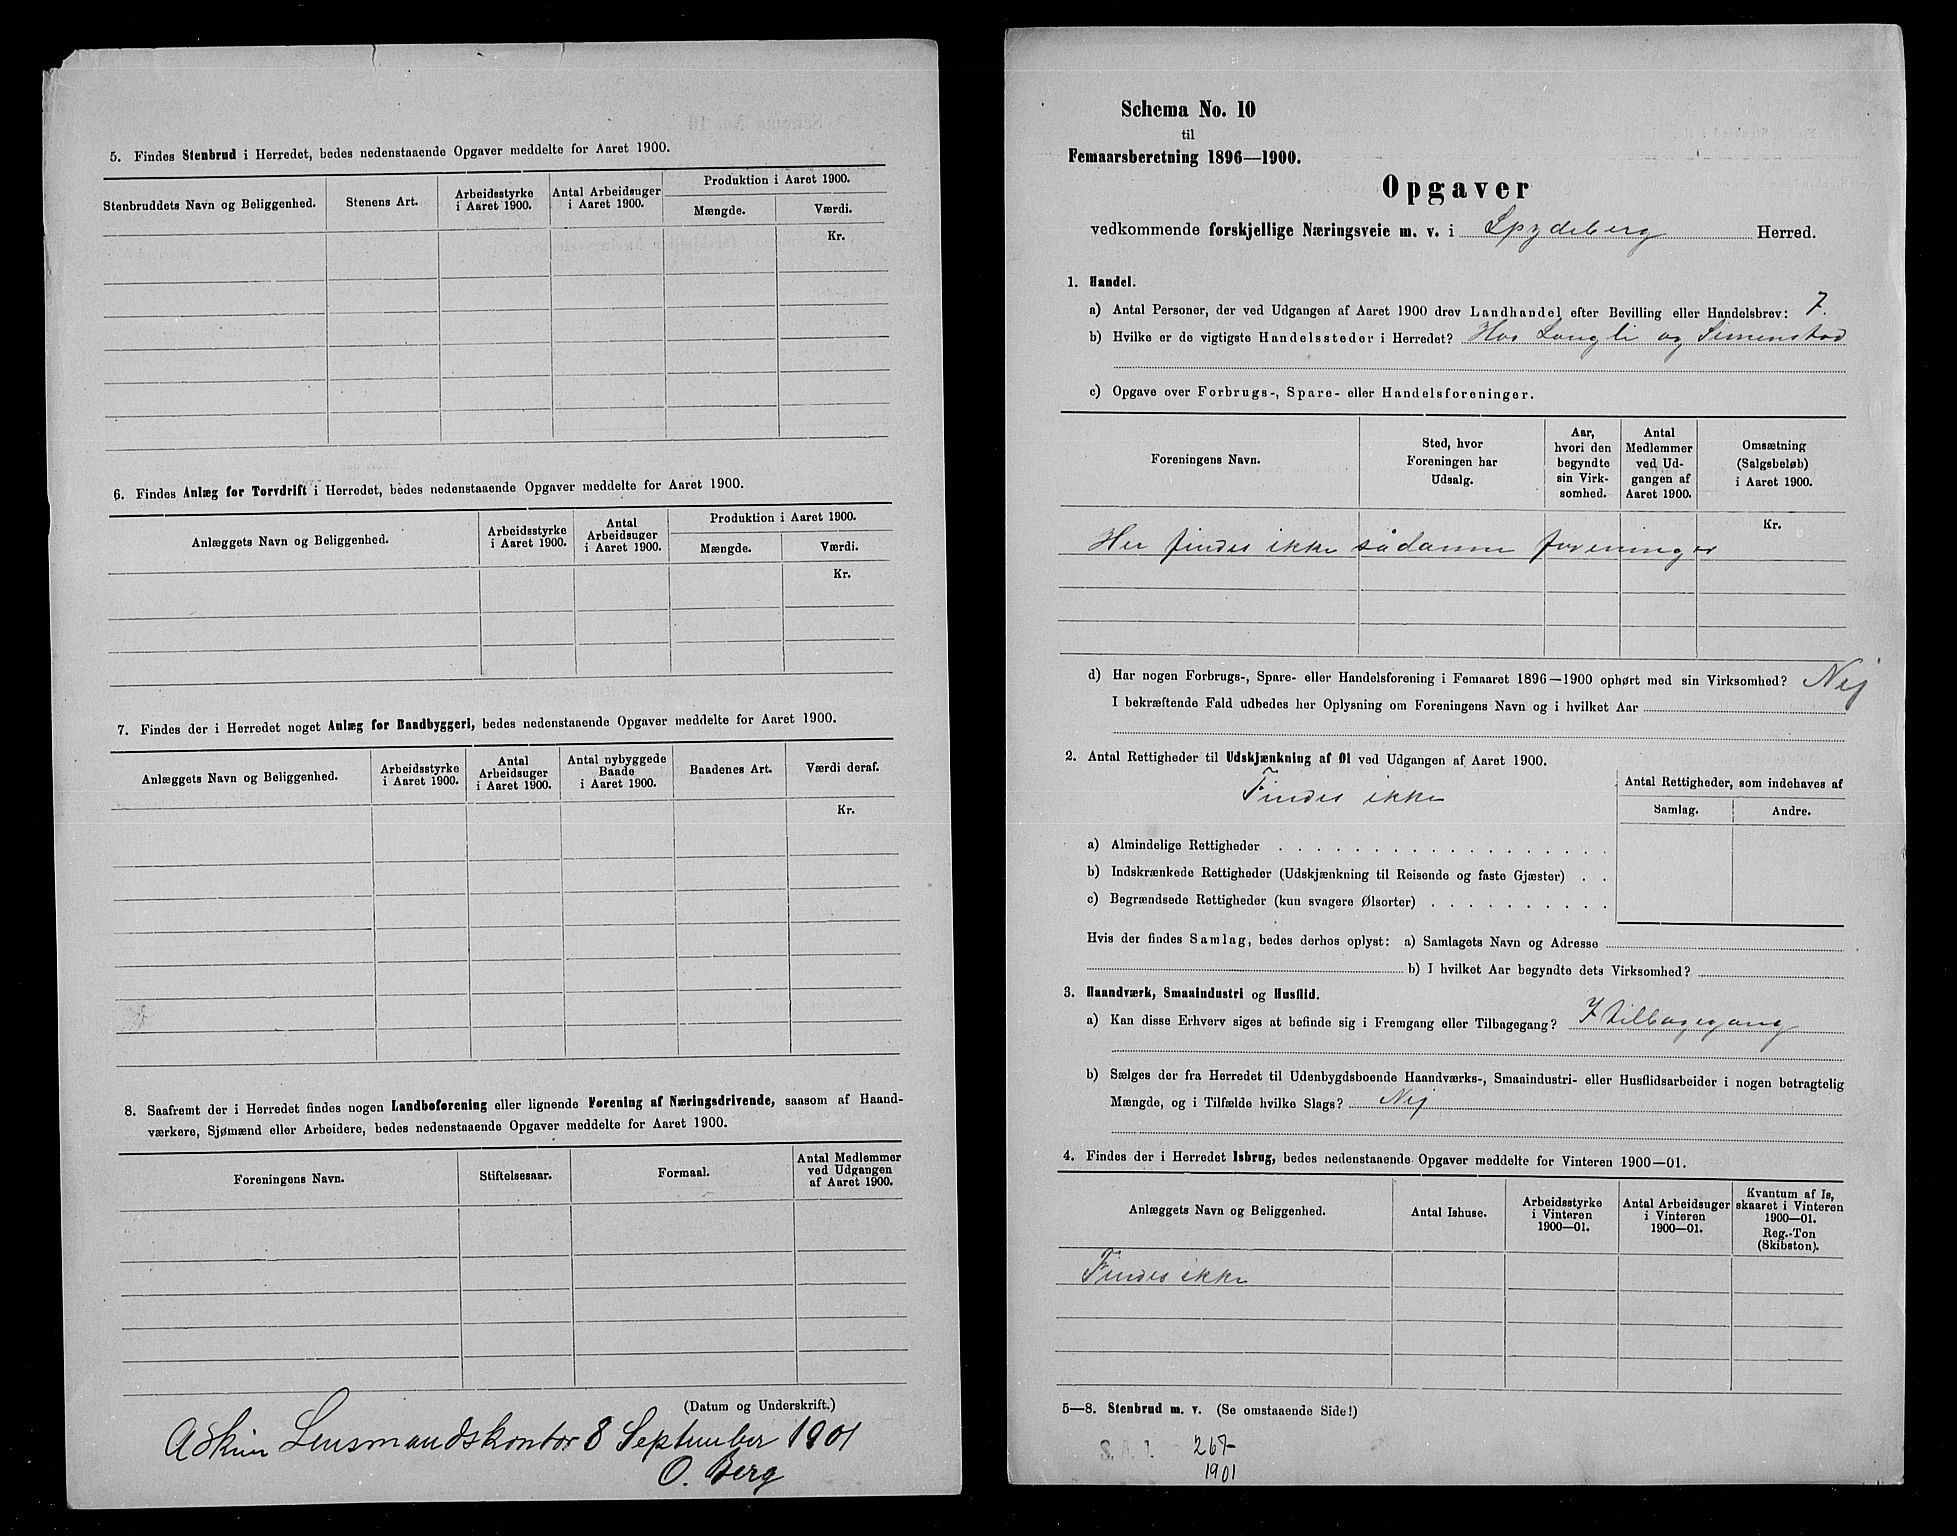 5. Findes Stenbrud i Herredet, bedes nedenstaaende Opgaver meddelte for Aaret 1900.
Stenbruddets Navn og Beliggenhed.
Stenens Art.
Arbeidsstyrke
i Aaret 1900.
Antal Arbeidsuger
i Aaret 1900.
Produktion i Aaret 1900.
Mængde.
Værdi.
Kr.
6. Findes Anlæg for Torvdrift i Herredet, bedes nedenstaaende Opgaver meddelte for Aaret 1900.
Anlæggets Navn og Beliggenhed.
Arbeidsstyrke
i Aaret 1900.
Antal
Arbeidsuger
i Aaret 1900.
Produktion i Aaret 1900.
Mængde.
Værdi.
Kr.
7. Findes der i Herredet noget Anlæg for Baadbyggeri, bedes nedenstaaende Opgaver meddelte for Aaret 1900.
Anlæggets Navn og Beliggenhed.
Arbeidsstyrke
i Aaret 1900.
Antal
Arbeidsuger
i Aaret 1900.
Antal nybyggede
Baade
i Aaret 1900.
Baadenes Art.
Værdi deraf.
Kr.
8. Saafremt der i Herredet findes nogen Landboforening eller lignende Forening af Næringsdrivende, saasom af Haand-
værkere, Sjømænd eller Arbeidere, bedes nedenstaaende Opgaver meddelte for Aaret 1900.
Foreningens Navn.
Stiftelsesaar.
Formaal.
Antal Medlemmer
ved Udgangen
af Aaret 1900.
(Datum og Underskrift.)
Askim Lensmandskontor 8 September 1901
O. Berg
Schema No. 10
til
Femaarsberetning 1896—1900.
Opgaver
vedkommende forskjellige Næringsveie m. v. i Spydeberg Herred.
1. Handel.
a) Antal Personer, der ved Udgangen af Aaret 1900 drev Landhandel efter Bevilling eller Handelsbrev: 7.
b) Hvilke er de vigtigste Handelssteder i Herredet? Hos Langli og Simenstad
c) Opgave over Forbrugs-, Spare- eller Handelsforeninger.
Foreningens Navn.
Sted, hvor
Foreningen har
Udsalg.
Aar,
hvori den
begyndte
sin Virk-
somhed.
Antal
Medlemmer
ved Ud-
gangen af
Aaret 1900.
Omsætning
(Salgsbeløb)
i Aaret 1900.
Kr.
Her findes ikke sådanne foreninger
d) Har nogen Forbrugs-, Spare- eller Handelsforening i Femaaret 1896—1900 ophørt med sin Virksomhed? Nej
I bekræftende Fald udbedes her Oplysning om Foreningens Navn og i hvilket Aar
2. Antal Rettigheder til Udskjænkning af Øl ved Udgangen af Aaret 1900.
Findes ikke
Antal Rettigheder, som indehaves af
Samlag.
Andre.
a) Almindelige Rettigheder . . . . . . . . . . . . . . . . . .
b) Indskrænkede Rettigheder (Udskjænkning til Reisende og faste Gjæster) . .
c) Begrændsede Rettigheder (kun svagere Ølsorter) . . . . . . . . . .
Hvis der findes Samlag, bedes derhos oplyst: a) Samlagets Navn og Adresse
b) I hvilket Aar begyndte dets Virksomhed?
3. Haandværk, Smaaindustri og Husflid.
a) Kan disse Erhverv siges at befinde sig i Fremgang eller Tilbagegang? I tilbagegang
b) Sælges der fra Herredet til Udenbygdsboende Haandværks-, Smaaindustri- eller Husflidsarbeider i nogen betragtelig
Mængde, og i Tilfælde hvilke Slags? Nej
4. Findes der i Herredet Isbrug, bedes nedenstaaende Opgaver meddelte for Vinteren 1900—01.
Anlæggets Navn og Beliggenhed.
Antal Ishuse.
Arbeidsstyrke
i Vinteren
1900—01.
Antal Arbeidsuger
i Vinteren
1900—01.
Kvantum af Is,
skaaret i Vinteren
1900—01.
Reg.-Ton
(Skibston).
Findes ikke
5—8. Stenbrud m. v. (Se omstaaende Side!)
267
1901